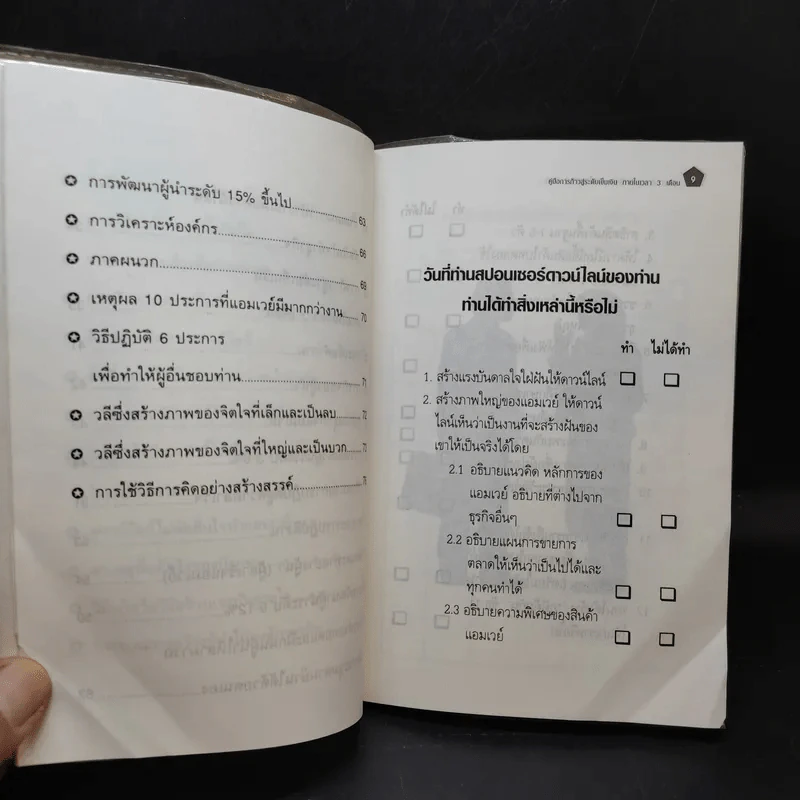 ✪ การพัฒนาผู้นำระดับ 15% ขึ้นไป.................63
✪ การวิเคราะห์องค์กร.................66
✪ ภาคผนวก.................69
✪ เหตุผล 10 ประการที่แอมเวย์มีมากกว่างาน.....70
✪ วิธีปฏิบัติ 6 ประการ
เพื่อทำให้ผู้อื่นชอบท่าน.................71
✪ วลีซึ่งสร้างภาพของจิตใจที่เล็กและเป็นลบ......72
✪ วลีซึ่งสร้างภาพของจิตใจที่ใหญ่และเป็นบวก....73
✪ การใช้วิธีการคิดอย่างสร้างสรรค์.................
คู่มือการก้าวสู่ระดับเข็มเงิน ภายในเวลา 3 เดือน 9
วันที่ท่านสปอนเซอร์ดาวน์ไลน์ของท่าน
ท่านได้ทำสิ่งเหล่านี้หรือไม่
ทำ ไม่ได้ทำ
1. สร้างแรงบันดาลใจใฝ่ฝันให้ดาวน์ไลน์
2. สร้างภาพใหญ่ของแอมเวย์ ให้ดาวน์
ไลน์เห็นว่าเป็นงานที่จะสร้างฝันของ
เขาให้เป็นจริงได้โดย
2.1 อธิบายแนวคิด หลักการของ
แอมเวย์ อธิบายที่ต่างไปจาก
ธุรกิจอื่นๆ
2.2 อธิบายแผนการขายการ
ตลาดให้เห็นว่าเป็นไปได้และ
ทุกคนทำได้
2.3 อธิบายความพิเศษของสินค้า
แอมเวย์